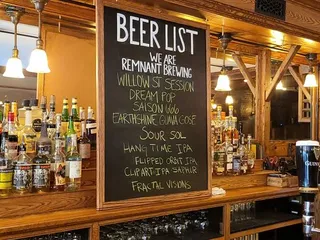 BEER LIST
WE ARE
REMNANT BREWING
WILLOW ST SESSION
DREAM POP
SAISON 666
EARTHSHINE GUAVA GOSE
SOUR SOL
HANG TIME IPA
FLIPPED ORBIT IPA
CLIPART: IPA SAPHIR
FRACTAL VISIONS
GUINNESS